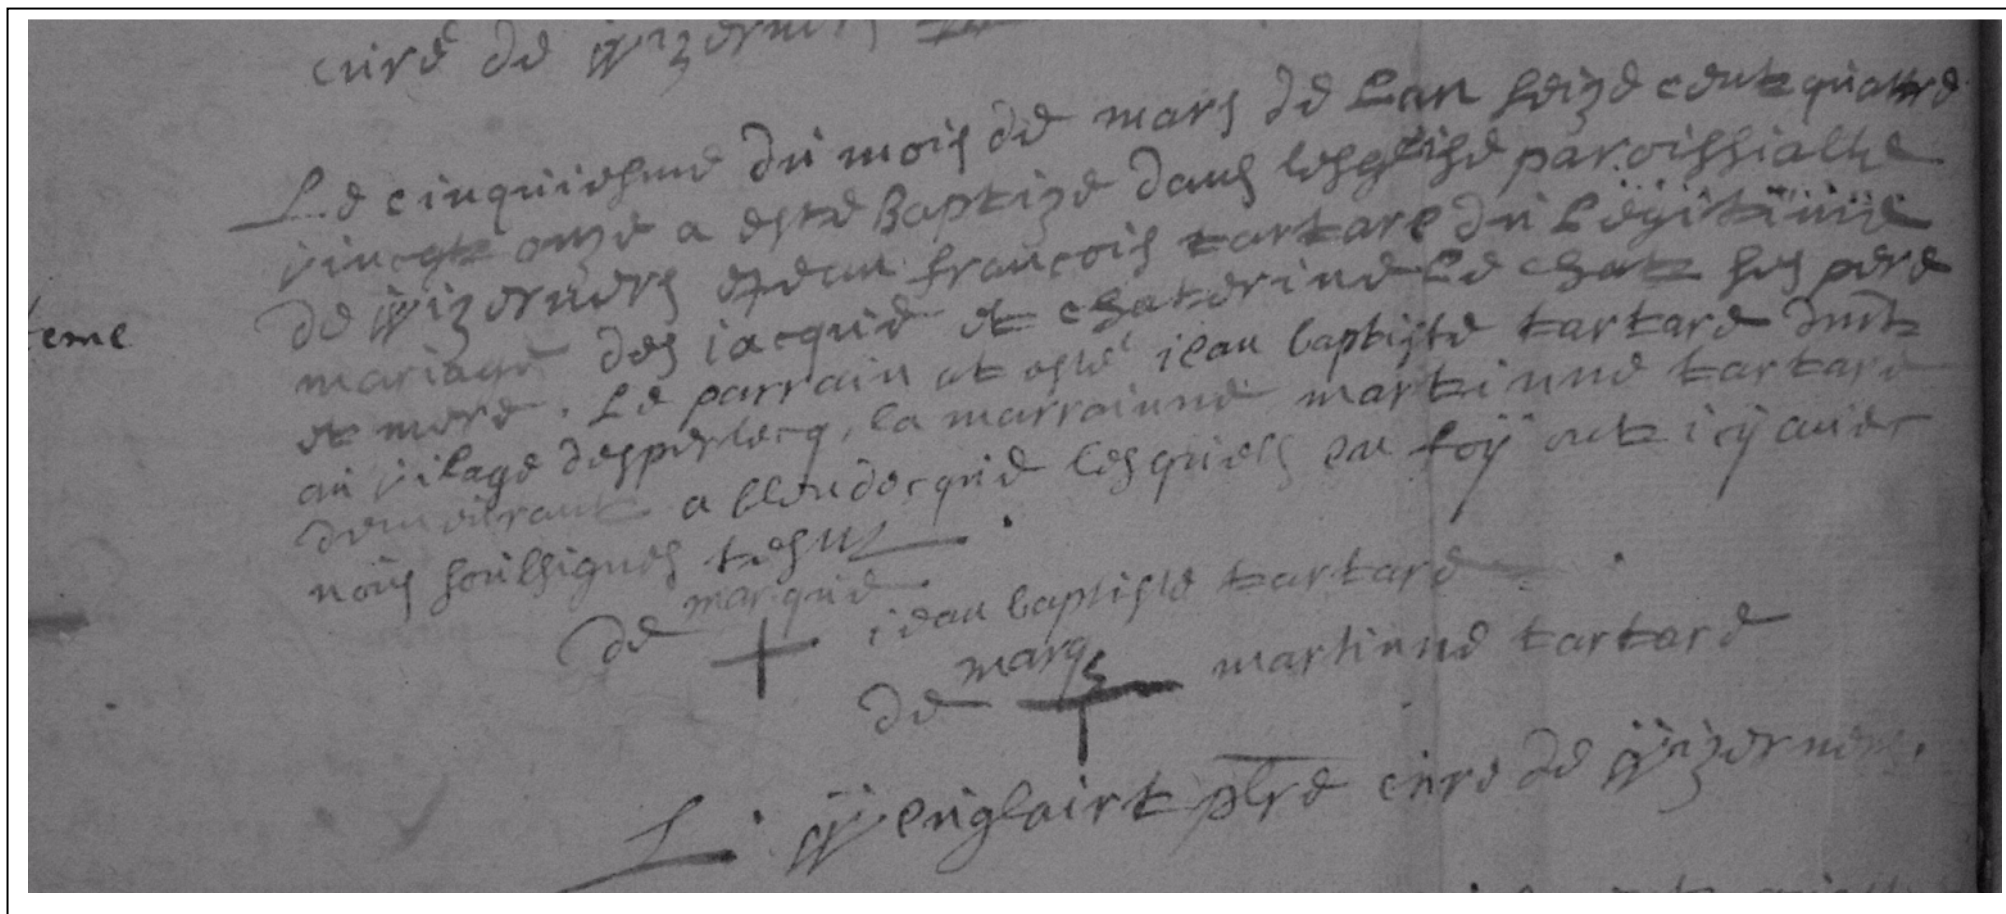 curé de wizernes
Le cinquiesme du mois de mars de Lan seize cents quattre
vincgts onze a esté Baptize dans lesglise paroissialle
de wizernes iean francois tartare du Légitime
mariage des iacque et chaterine Le chat ses pere
et mere. Le parrain at esté iean baptiste tartare dudt
eme
au vilage desperlecq, la marrainne martinne tartare
demeurant a blendecque lesquels en foÿ ont icÿ avec
nous soubsignes
de marque iean baptiste tartare
de marq martinne tartare
wenglairt pbre curé de wizernes.